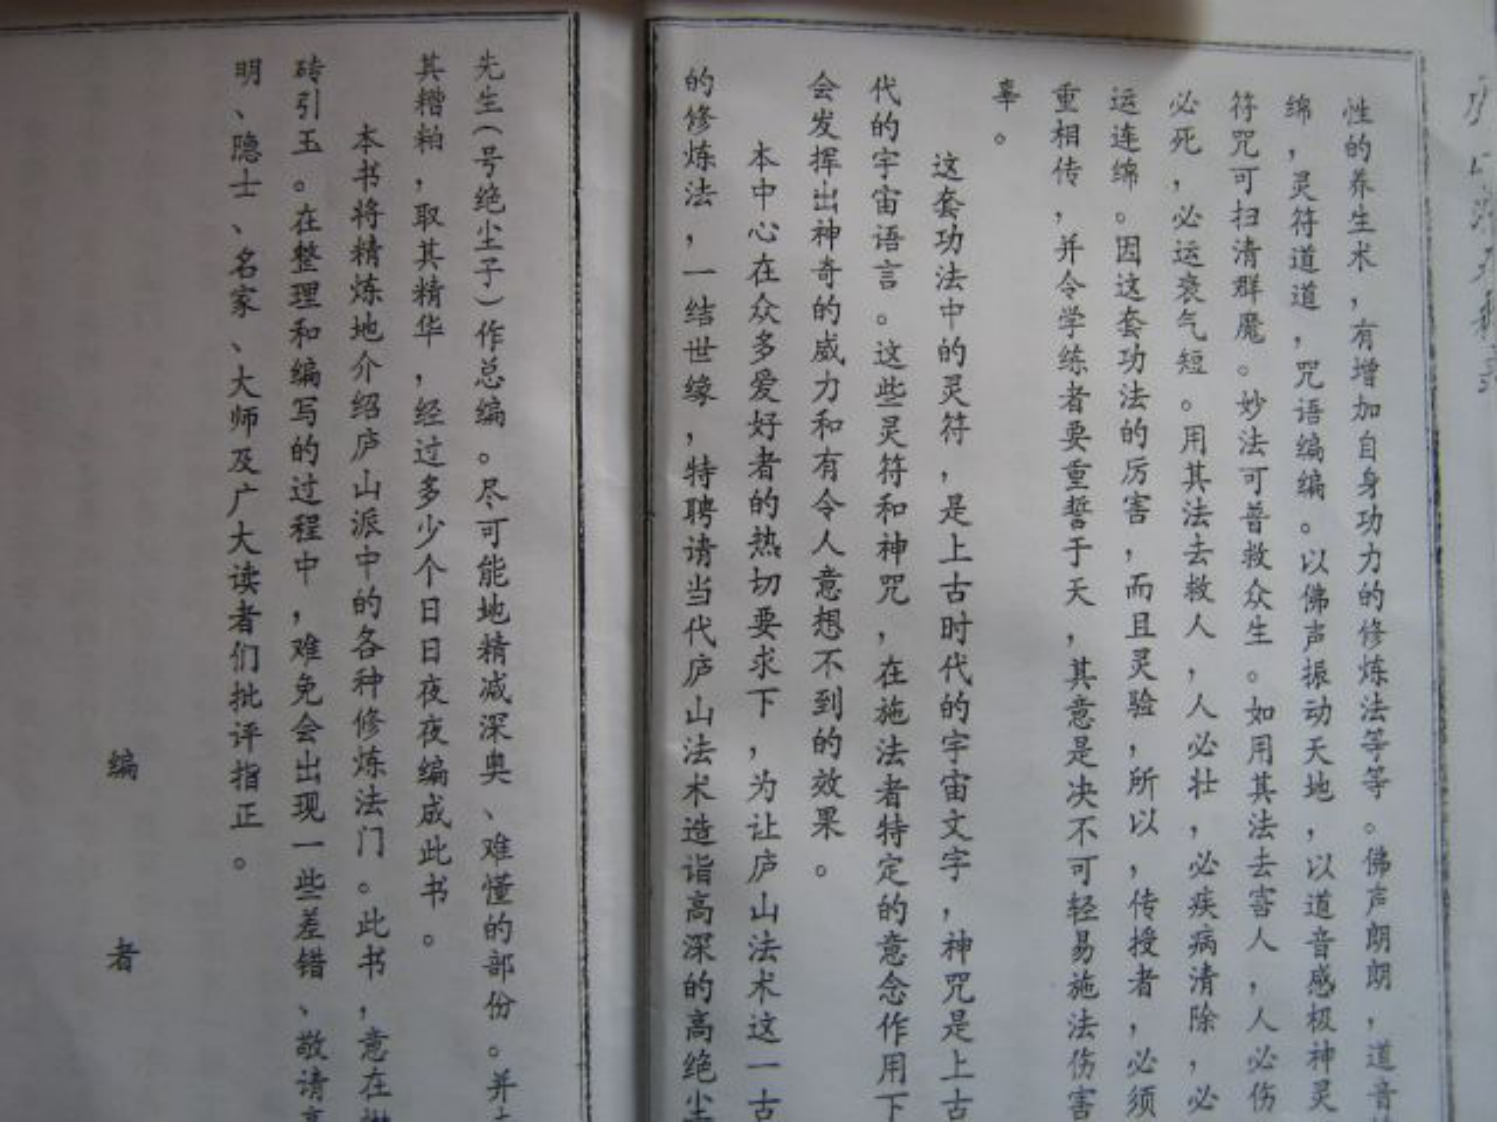 性的养生术，有增加自身功力的修炼法等等。佛声朗朗，道音
绵，灵符道道，咒语编编。以佛声振动天地，以道音感极神灵
符咒可扫清群魔。妙法可普救众生。如用其法去害人，人必伤
必死，必运衰气短。用其法去救人，人必壮，必疾病清除，必
运连绵。因这套功法的厉害，而且灵验，所以，传授者，必须
重相传，并令学练者要重誓于天，其意是决不可轻易施法伤害
辜。
这套功法中的灵符，是上古时代的宇宙文字，神咒是上古
代的宇宙语言。这些灵符和神咒，在施法者特定的意念作用下
会发挥出神奇的威力和有令人意想不到的效果。
本中心在众多爱好者的热切要求下，为让庐山法术这一古
的修炼法，一结世缘，特聘请当代庐山法术造诣高深的高绝尘
先生（号绝尘子）作总编。尽可能地精减深奥、难懂的部份。并
其糟粕，取其精华，经过多少个日日夜夜编成此书。
本书将精炼地介绍庐山派中的各种修炼法门。此书，意在
砖引玉。在整理和编写的过程中，难免会出现一些差错、敬请
明、隐士、名家、大师及广大读者们批评指正。
编者